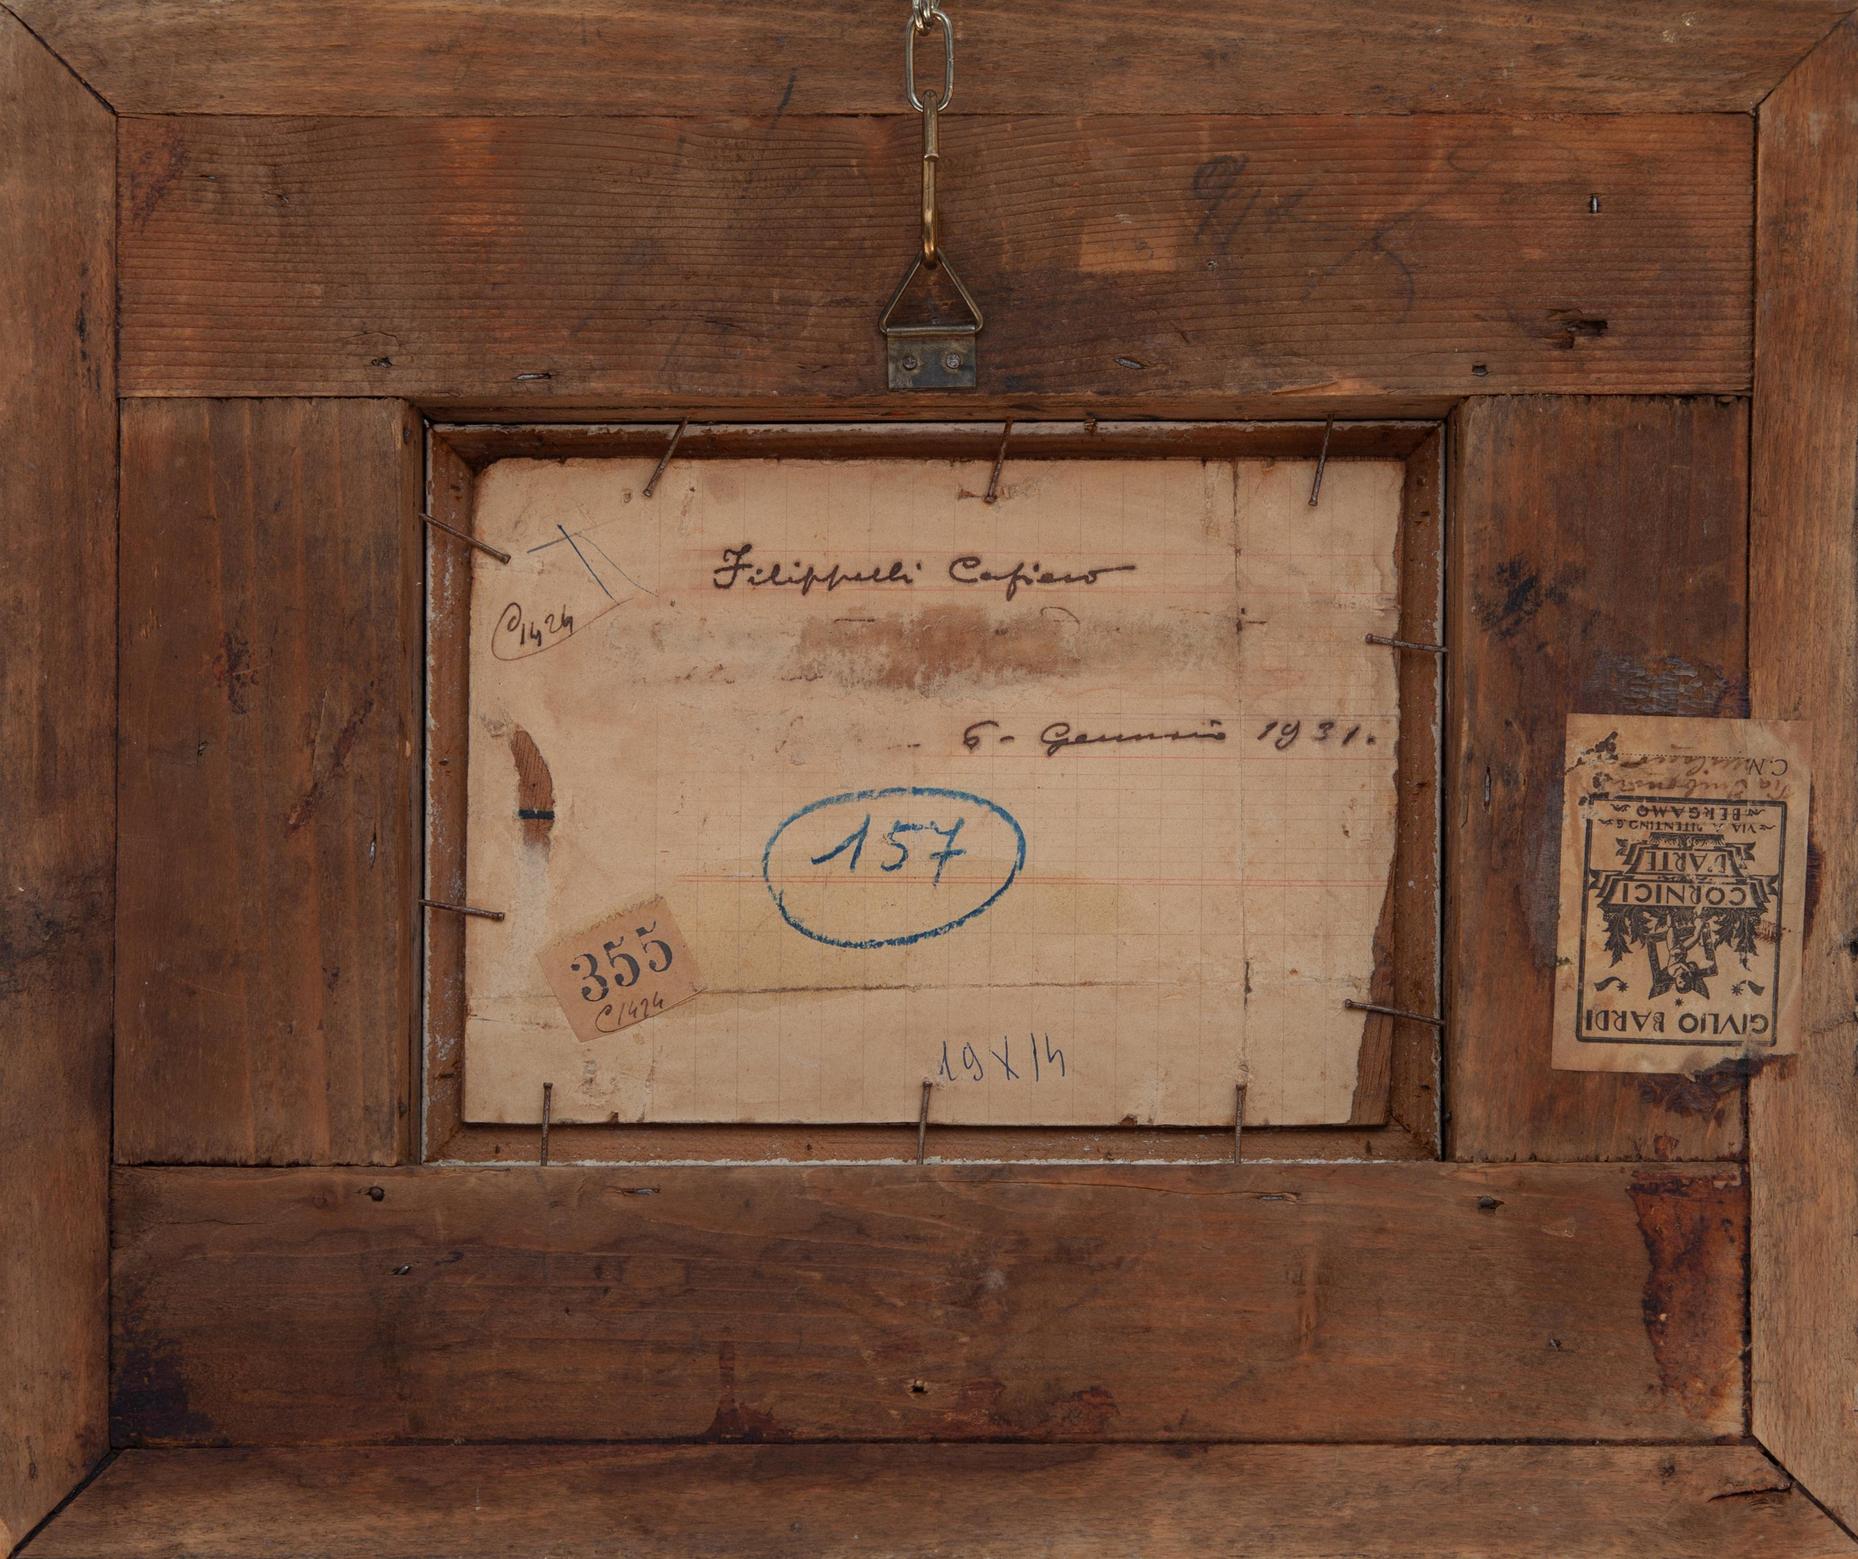 Filippelli Cafiero
C1424
6 - Gennaio 1931.
157
355
C1424
19 X 14
GIVLIO BARDI
CORNICI
D'ARTE
VIA A. PITENTINO 6
BERGAMO
C.N.